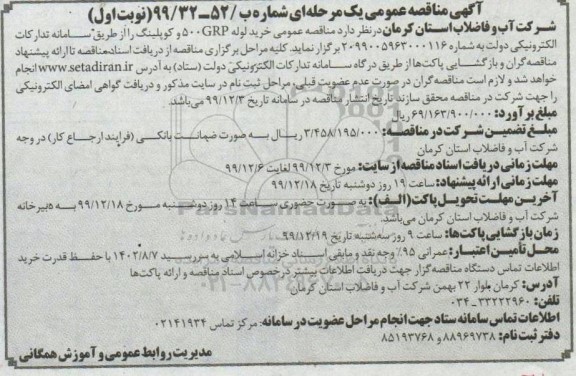 آگهی مناقصه عمومی یک مرحله‌ای شماره ب/ ۵۲ـ ۹۹/۳۲ (نوبت اول)
شرکت آب و فاضلاب استان کرمان در نظر دارد مناقصه عمومی خرید لوله ۵۰۰GRP و کوپلینگ را از طریق سامانه تدارکات
الکترونیکی دولت به شماره ۲۰۹۹۰۰۵۹۶۳۰۰۰۱۱۶ برگزار نماید. کلیه مراحل برگزاری مناقصه از دریافت اسناد مناقصه تا ارائه پیشنهاد
مناقصه‌گران و بازگشایی پاکت‌ها از طریق درگاه سامانه تدارکات الکترونیکی دولت (ستاد) به آدرس www.setadiran.ir انجام
خواهد شد و لازم است مناقصه‌گران در صورت عدم عضویت قبلی، مراحل ثبت نام در سایت مذکور و دریافت گواهی امضای الکترونیکی
را جهت شرکت در مناقصه محقق سازند تاریخ انتشار مناقصه در سامانه تاریخ ۹۹/۱۲/۳ می‌باشد.
مبلغ برآورد: ۶۹/۱۶۳/۹۰۰/۰۰۰ ریال
مبلغ تضمین شرکت در مناقصه: ۳/۴۵۸/۱۹۵/۰۰۰ ریال به صورت ضمانت بانکی (فرایند ارجاع کار) در وجه
شرکت آب و فاضلاب استان کرمان
مهلت زمانی دریافت اسناد مناقصه از سایت: مورخ ۹۹/۱۲/۳ لغایت ۹۹/۱۲/۶
مهلت زمانی ارائه پیشنهاد: ساعت ۱۹ روز دوشنبه تاریخ ۹۹/۱۲/۱۸
آخرین مهلت تحویل پاکت (الف): به صورت حضوری ساعت ۱۴ روز دوشنبه مورخ ۹۹/۱۲/۱۸ به دبیرخانه
شرکت آب و فاضلاب استان کرمان می‌باشد.
زمان بازگشایی پاکت‌ها: ساعت ۹ روز سه‌شنبه تاریخ ۹۹/۱۲/۱۹
محل تأمین اعتبار: عمرانی ۹۵٪ وجه نقد و مابقی اسناد خزانه اسلامی به سررسید ۱۴۰۲/۸/۷ با حفظ قدرت خرید
اطلاعات تماس دستگاه مناقصه‌گزار جهت دریافت اطلاعات بیشتر درخصوص اسناد مناقصه و ارائه پاکت‌ها
آدرس: کرمان بلوار ۲۲ بهمن شرکت آب و فاضلاب استان کرمان
تلفن: ۳۳۲۲۲۹۶۰-۰۳۴
اطلاعات تماس سامانه ستاد جهت انجام مراحل عضویت در سامانه: مرکز تماس ۰۲۱۴۱۹۳۴
دفتر ثبت نام: ۸۸۹۶۹۷۳۸ و ۸۵۱۹۳۷۶۸
مدیریت روابط عمومی و آموزش همگانی
ParsNamadData